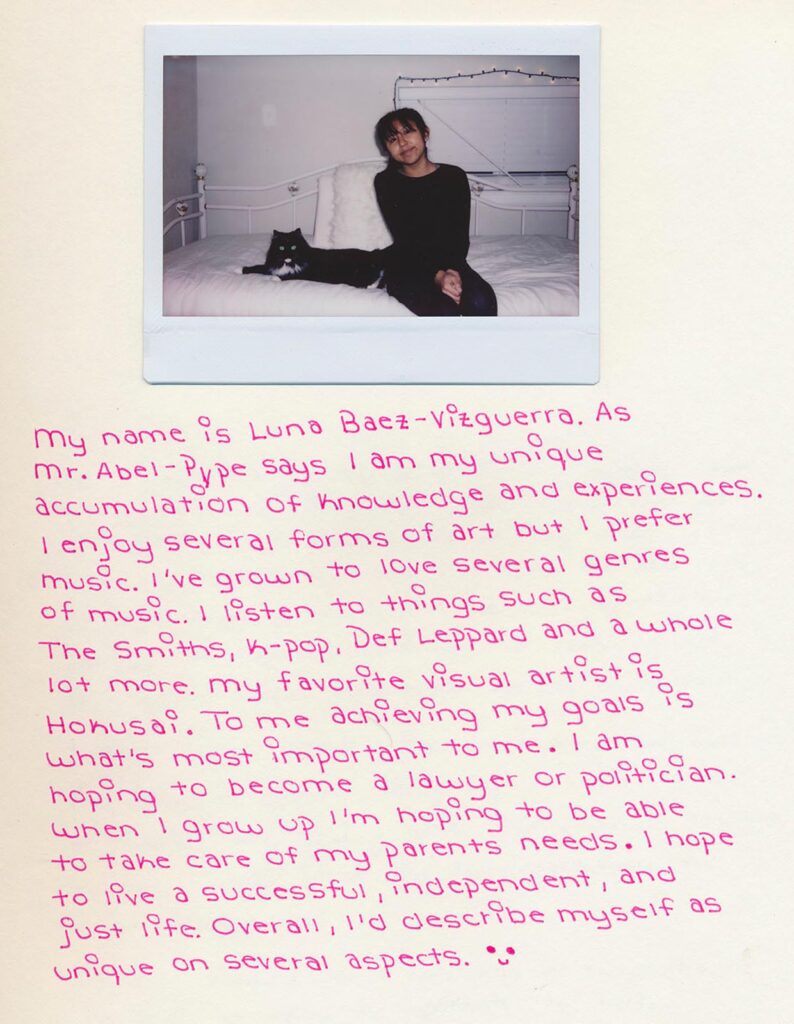 My name is Luna Baez-Vizguerra. As
Mr. Abel-Pype says I am my unique
accumulation of knowledge and experiences.
I enjoy several forms of art but I prefer
music. I've grown to love several genres
of music. I listen to things such as
The Smiths, K-pop, Def Leppard and a whole
lot more. My favorite visual artist is
Hokusai. To me achieving my goals is
what's most important to me. I am
hoping to become a lawyer or politician.
When I grow up I'm hoping to be able
to take care of my parents needs. I hope
to live a successful, independent, and
just life. Overall, I'd describe myself as
unique on several aspects.